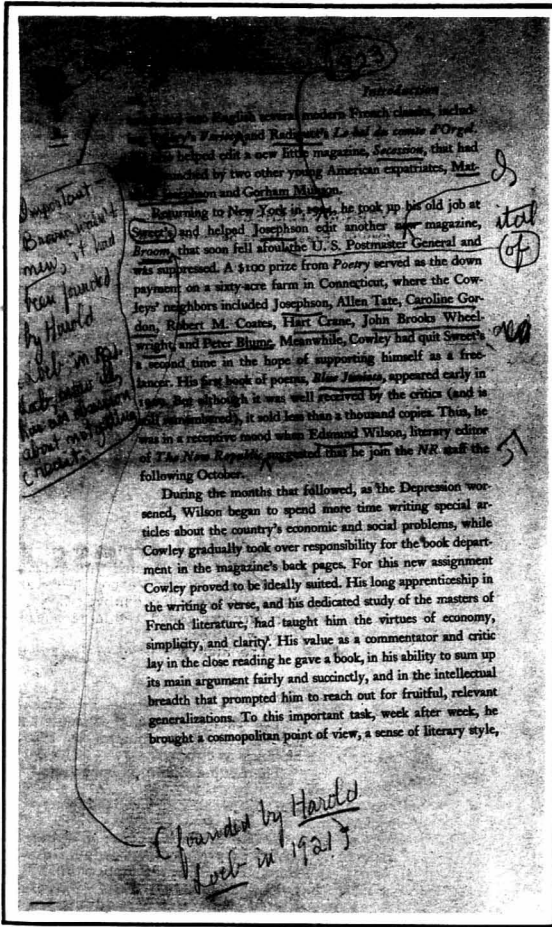 1923
Introduction
into English several modern French classics, includ-
and Radiguet's Le bal du comte d'Orgel.
helped edit a new little magazine, Secession, that had
launched by two other young American expatriates, Mat-
Josephson and Gorham Munson.
Returning to New York in, he took up his old job at
Sweet's and helped Josephson edit another magazine,
Broom, that soon fell afoul the U. S. Postmaster General and
was suppressed. A $100 prize from Poetry served as the down
payment on a sixty-acre farm in Connecticut, where the Cow-
leys' neighbors included Josephson, Allen Tate, Caroline Gor-
don, Robert M. Coates, Hart Crane, John Brooks Wheel-
wright, and Peter Blume. Meanwhile, Cowley had quit Sweet's
a second time in the hope of supporting himself as a free-
lancer. His first book of poems, Blue Juniata, appeared early in
But although it was well received by the critics (and is
still remembered), it sold less than a thousand copies. Thus, he
was in a receptive mood when Edmund Wilson, literary editor
of The New Republic, suggested that he join the NR staff the
following October.
During the months that followed, as the Depression wor-
sened, Wilson began to spend more time writing special ar-
ticles about the country's economic and social problems, while
Cowley gradually took over responsibility for the book depart-
ment in the magazine's back pages. For this new assignment
Cowley proved to be ideally suited. His long apprenticeship in
the writing of verse, and his dedicated study of the masters of
French literature, had taught him the virtues of economy,
simplicity, and clarity. His value as a commentator and critic
lay in the close reading he gave a book, in his ability to sum up
its main argument fairly and succinctly, and in the intellectual
breadth that prompted him to reach out for fruitful, relevant
generalizations. To this important task, week after week, he
brought a cosmopolitan point of view, a sense of literary style,
Important—
Broom wasn't
new; it had
been founded
by Harold
Loeb in
about not getting
credit.
ital
of
(founded by Harold
Loeb in 1921)